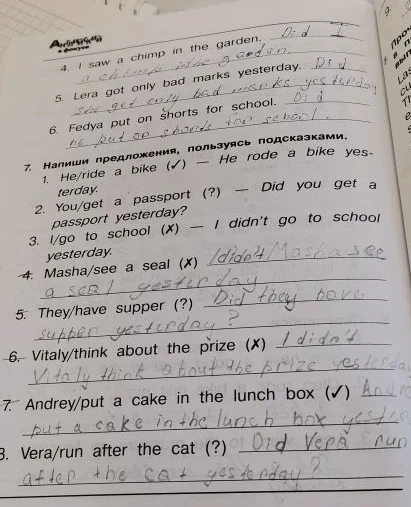 Английский
в фокусе
4. I saw a chimp in the garden. Did I
a chimp in the garden
5. Lera got only bad marks yesterday. Did
she get only bad marks yesterday
6. Fedya put on shorts for school. Did
he put on shorts for school.
7. Напиши предложения, пользуясь подсказками.
1. He/ride a bike (✓) — He rode a bike yes-
terday.
2. You/get a passport (?) — Did you get a
passport yesterday?
3. I/go to school (✗) — I didn't go to school
yesterday.
4. Masha/see a seal (✗) I didn't Masha see
a seal yesterday
5. They/have supper (?) Did they have
supper yesterday?
6. Vitaly/think about the prize (✗) I didn't
Vitaly think about the prize yesterday
7. Andrey/put a cake in the lunch box (✓) And
put a cake in the lunch box yester
8. Vera/run after the cat (?) Did Vera run
after the cat yesterday?
9.